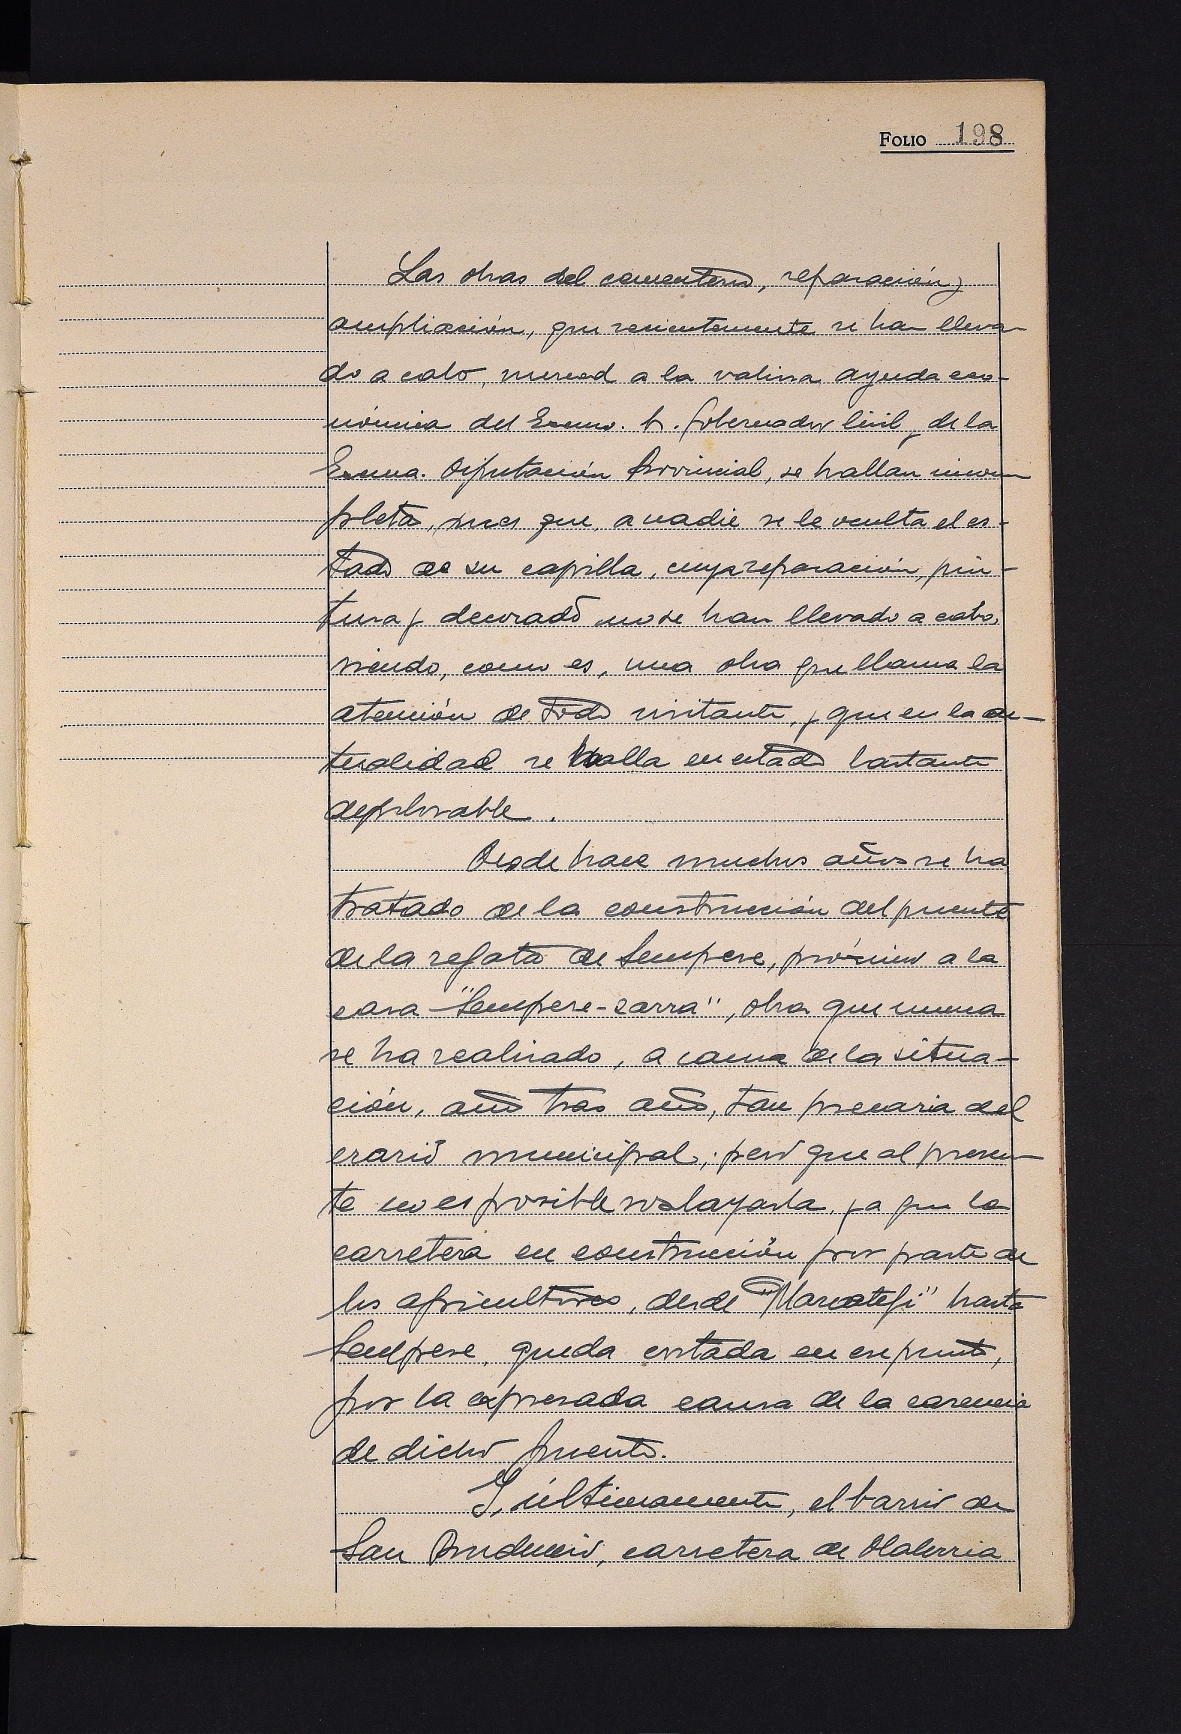 FOLIO 198
Las obras del cementerio, reparación y
ampliación, que recientemente se han lleva-
do a cabo, merced a la valiosa ayuda eco-
nómica del Excmo. Sr. Gobernador Civil y de la
Excma. Diputación Provincial, se hallan incom
pleta, pues que, a nadie se le oculta el es-
tado de su capilla, cuya reparación, pin-
tura y decorado no se han llevado a cabo,
siendo, como es, una obra que llama la
atención de todo visitante, y que en la ac-
tualidad se halla en estado bastante
deplorable.
Desde hace muchos años se ha
tratado de la construcción del puente
de la regata de Sempere, próximo a la
casa "Sempere-zarra", obra que nunca
se ha realizado, a causa de la situa-
ción, año tras año, tan precaria del
erario municipal; pero que al presen-
te no es posible soslayarla, ya que la
carretera en construcción por parte de
los agricultores, desde "Marcotegi" hasta
Sempere, queda cortada en ese punto,
por la expresada causa de la carencia
de dicho puente.
Y, últimamente, el barrio de
San Prudencio, carretera de Olaberria